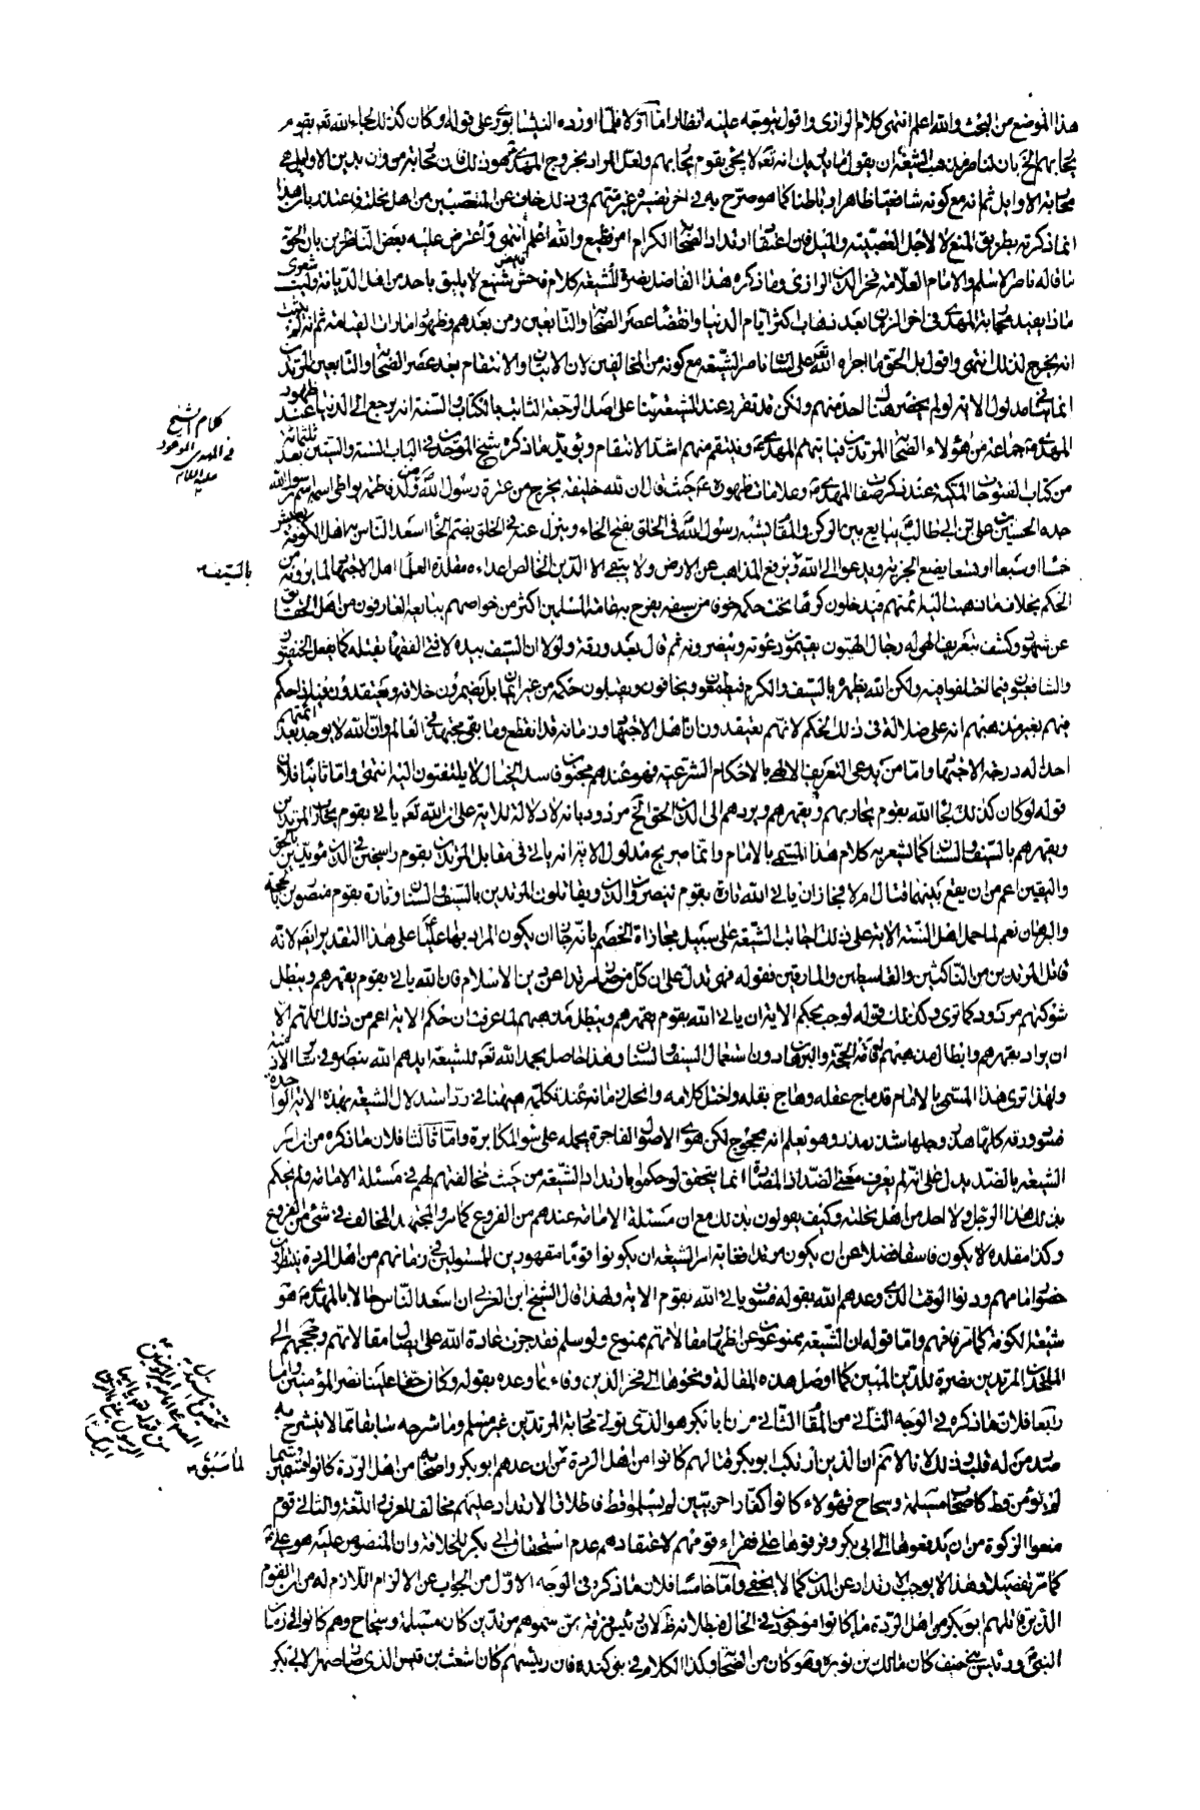 هذا الموضع من البحث والله اعلم انتهى كلام الرازى واقول يتوجه عليه انظار اما اولا فلما اورده النيشابورى على قوله ولو كان كذلك لجاء الله تعالى بقوم
يحاربهم الخ بان لناصر مذهب الشيعة ان يقول ما يدريك انه تعالى لا يجئ بقوم يحاربهم ولعل المراد بخروج المهدى هو ذلك فان محاربة من دان بدين الاوايل هى
محاربة الاوايل ثم انه مع كونه شافعيا ظاهرا وباطنا كما هو مصرح به فى اخر تفسيره غير متهم فى ذلك خاف عن المتعصبين من اهل نحلته فاعتذر بان هذا
انما ذكرته بطريق المنع لا لاجل العصبية والميل فان اعتقاد ارتداد الصحابة الكرام امر فظيع والله اعلم انتهى واعترض عليه بعض الناظرين بان الحق
ما قاله ناصر الاسلام والامام العلامة فخر الدين الرازى وما ذكره هذا الفاضل نصرة للشيعة كلام فاحش شنيع لا يليق باحد من اهل الديانة وليت شعرى
ماذا يفيد محاربة المهدى فى اخر الزمان بعد ذهاب اكثر ايام الدنيا وانقضاء عصر الصحابة والتابعين ومن بعدهم وظهور امارات القيامة ثم انه لم يثبت
انه يخرج لذلك انتهى واقول بل الحق ما اجراه الله تعالى على لسان ناصر الشيعة مع كونه من المخالفين لان الاتيان والانتقام بعد عصر الصحابة والتابعين المرتدين
انما ينافى مدلول الاية لو لم يحضر هناك احد منهم ولكن قد تقرر عند الشيعة بناء على اصل الرجعة الثابتة بالكتاب والسنة انه يرجع الى الدنيا عند ظهور
المهدى جماعة من هؤلاء الصحابة المرتدين فياتيهم المهدى وينتقم منهم اشد الانتقام ويؤيد ما ذكره شيخ الموحدين فى الباب الستة والستين بعد ثلثمائة
من كتاب الفتوحات المكية عند ذكر صفات المهدى وعلامات ظهوره حيث قال ان لله خليفة يخرج من عترة رسول الله من ولد فاطمة يواطى اسمه اسم رسول الله
جده الحسين بن على بن ابى طالب يبايع بين الركن والمقام يشبه رسول الله فى الخلق بفتح الخاء وينزل عنه فى الخلق بضم الخاء اسعد الناس به اهل الكوفة يعيش
خمسا او سبعا او تسعا يضع الجزية ويدعو الى الله بالسيف ويرفع المذاهب عن الارض ولا يبقى الا الدين الخالص اعداءه مقلدة العلماء اهل الاجتهاد لما يرونه من
الحكم بخلاف ما ذهبت اليه ائمتهم فيدخلون كرها تحت حكمه خوفا من سيفه يفرح به عامة المسلمين اكثر من خواصهم يبايعه العارفون من اهل الحقائق
عن شهود وكشف بتعريف الهى له رجال الهيون يقيمون دعوته وينصرونه ثم قال بعد ورقة ولولا ان السيف بيده لافتى الفقهاء بقتله كما يفعل الحنفيون
والشافعيون فيما اختلفوا فيه ولكن الله يظهره بالسيف والكرم فيطمعون ويخافون ويقبلون حكمه من غير ايمان بل يضمرون خلافه ويعتقدون فيه اذا حكم
فيهم بغير مذهبهم انه على ضلالة فى ذلك الحكم لانهم يعتقدون ان اهل الاجتهاد وزمانه قد انقطع وما بقى مجتهد فى العالم وان الله لا يوجد بعد ائمتهم
احدا له درجة الاجتهاد واما من يدعى التعريف الالهى بالاحكام الشرعية فهو عندهم مجنون فاسد الخيال لا يلتفتون اليه انتهى واما ثانيا فلان
قوله لو كان كذلك لجاء الله بقوم يحاربهم ويقهرهم ويردهم الى الدين الحق الخ مردود بانه لا دلالة للاية على ان الله تعالى ياتى بقوم يحارب المرتدين
ويقهرهم بالسيف والسنان كما يشعر به كلام هذا المسمى بالامام وانما صريح مدلول الاية انه ياتى فى مقابل المرتدين بقوم راسخين فى الدين مؤيدين بالحق
واليقين اعم من ان يقع بينهما قتال ام لا فجاز ان ياتى الله تارة بقوم ينصرون الدين ويقاتلون المرتدين بالسيف والسنان وتارة بقوم منصورين بالحجة
والبرهان نعم لما حمل اهل السنة الاية على ذلك اجابت الشيعة على سبيل مجازاة الخصم بانه جاز ان يكون المراد بها عليا على هذا التقدير ايضا لانه
قاتل المرتدين من الناكثين والقاسطين والمارقين فقوله فهى تدل على ان كل من صار مرتدا عن دين الاسلام فان الله ياتى بقوم يقهرهم ويبطل
شوكتهم مردود كما ترى وكذلك قوله لوجب بحكم الاية ان ياتى الله بقوم يقهرهم ويبطل مذهبهم لما عرفت ان حكم الاية اعم من ذلك اللهم الا
ان يراد بقهرهم وابطال مذهبهم اقامة الحجة والبرهان دون استعمال السيف والسنان وهذا حاصل بحمد الله تعالى للشيعة ايدهم الله بنصره فى سائر الازمنة
ولهذا ترى هذا المسمى بالامام قد ماج عقله وهاج بقله واختل كلامه وانحل زمامه عند تكلمه هيهنا فى رد استدلال الشيعة بهذه الاية الواحدة
فسود ورقة كلها هذر وجلها شذر مذر وهو يعلم انه محجوج لكن هوى الاصول الفاجرة يحمله على سوء المكابرة واما ثالثا فلان ما ذكره من ان امر
الشيعة بالضد يدل على انه لم يعرف معنى الضد اذ المضادة انما يتحقق لو حكموا بارتداد الشيعة من حيث مخالفتهم لهم فى مسئلة الامامة ولم يحكم
بذلك هذا الرجل ولا احد من اهل نحلته وكيف يقولون بذلك مع ان مسئلة الامامة عندهم من الفروع كما مر والمجتهد المخالف فى شئ من الفروع
وكذا مقلده لا يكون فاسقا فضلا عن ان يكون مرتدا فغاية امر الشيعة ان يكونوا قوما مقهورين للمستولين فى زمانهم من اهل الردة ينتظرون
حضور امامهم ودنو الوقت الذى وعدهم الله بقوله فسوف ياتى الله بقوم الاية ولهذا قال الشيخ ابن العربى ان اسعد الناس حالا بالمهدى هو
شيعة الكوفة كما مر ما فهم واما قوله ان الشيعة ممنوعون عن اظهار مقالاتهم ممنوع ولو سلم فقد جرت عادة الله على ايصال مقالاتهم وحججهم الى
الملحدين المرتدين نصرة للدين المبين كما اوصل هذه المقالة ونحوها الى فخر الدين وفاء بما وعده بقوله وكان حقا علينا نصر المؤمنين واما
رابعا فلان ما ذكره فى الوجه الثانى من المقام الثانى من ان ابا بكر هو الذى تولى محاربة المرتدين غير مسلم وما شرحه سابقا مما لا ينشرح به
صدر من له قلب وذلك لانا لا نم ان الذين ارتكب ابو بكر قتالهم كانوا من اهل الردة لما سبق من ان عدهم ابو بكر واصحابه من اهل الردة كانوا قسمين قسما
لم يؤمن قط كاصحاب مسيلمة وسجاح فهؤلاء كانوا كفارا حربيين لم يسلموا قط فاطلاق الارتداد عليهم مخالف للعرف واللغة والثانى قوم
منعوا الزكوة من ان يدفعوها الى ابى بكر وفرقوها على فقراء قومهم لاعتقادهم عدم استحقاق ابى بكر للخلافة وان المنصوص عليه هو على
كما مر تفصيله وهذا لا يوجب الارتداد عن الدين كما لا يخفى واما خامسا فلان ما ذكره فى الوجه الاول من الجواب عن الالزام اللازم له من ان القوم
الذين قاتلهم ابو بكر من اهل الردة ما كانوا موجودين فى الحال فبطلانه ظ لان رئيس فرقة ممن سموهم مرتدين كان مسيلمة وسجاح وهم كانوا فى زمان
النبى ورئيس بنى حنيف كان مالك بن نويرة وهو كان من الصحابة وكذا الكلام فى بنو كندة فان رئيسهم كان اشعث بن قيس الذى صار صهرا لابى بكر
كلام الشيخ
فى المهدى الموعود
عليه السلام
بالسيف
لما سبق